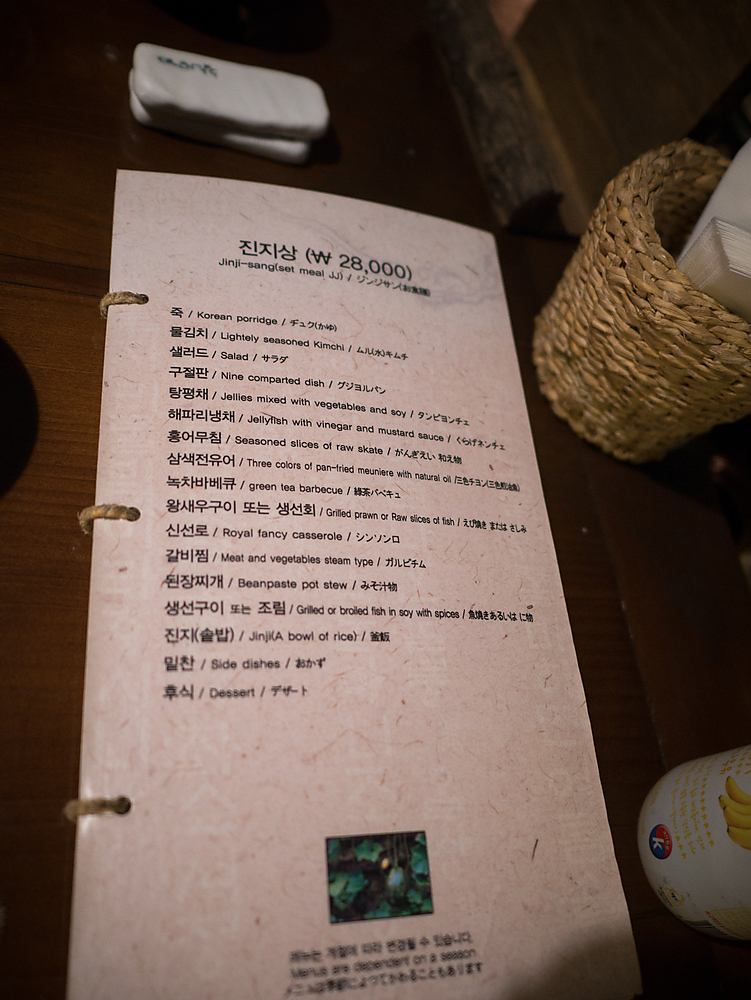 진지상 (₩ 28,000)
Jinji-sang(set meal JJ) / ジンジサン(お食膳)
죽 / Korean porridge / ヂュク(かゆ)
물김치 / Lightely seasoned Kimchi / ムル(水)キムチ
샐러드 / Salad / サラダ
구절판 / Nine comparted dish / グジョルパン
탕평채 / Jellies mixed with vegetables and soy / タンピョンチェ
해파리냉채 / Jellyfish with vinegar and mustard sauce / くらげネンチェ
홍어무침 / Seasoned slices of raw skate / がんぎえい 和え物
삼색전유어 / Three colors of pan-fried meuniere with natural oil /三色チヨン(三色煎油魚)
녹차바베큐 / green tea barbecue / 綠茶バベキュ
왕새우구이 또는 생선회 / Grilled prawn or Raw slices of fish / えび燒き または さしみ
신선로 / Royal fancy casserole / シンソンロ
갈비찜 / Meat and vegetables steam type / ガルビチム
된장찌개 / Beanpaste pot stew / みそ汁物
생선구이 또는 조림 / Grilled or broiled fish in soy with spices / 魚燒きあるいは に物
진지(솥밥) / Jinji(A bowl of rice) / 釜飯
밑찬 / Side dishes / おかず
후식 / Dessert / デザート
메뉴는 계절에 따라 변경될 수 있습니다.
Menus are dependent on a season.
メニュは季節によってかわることもあります
k